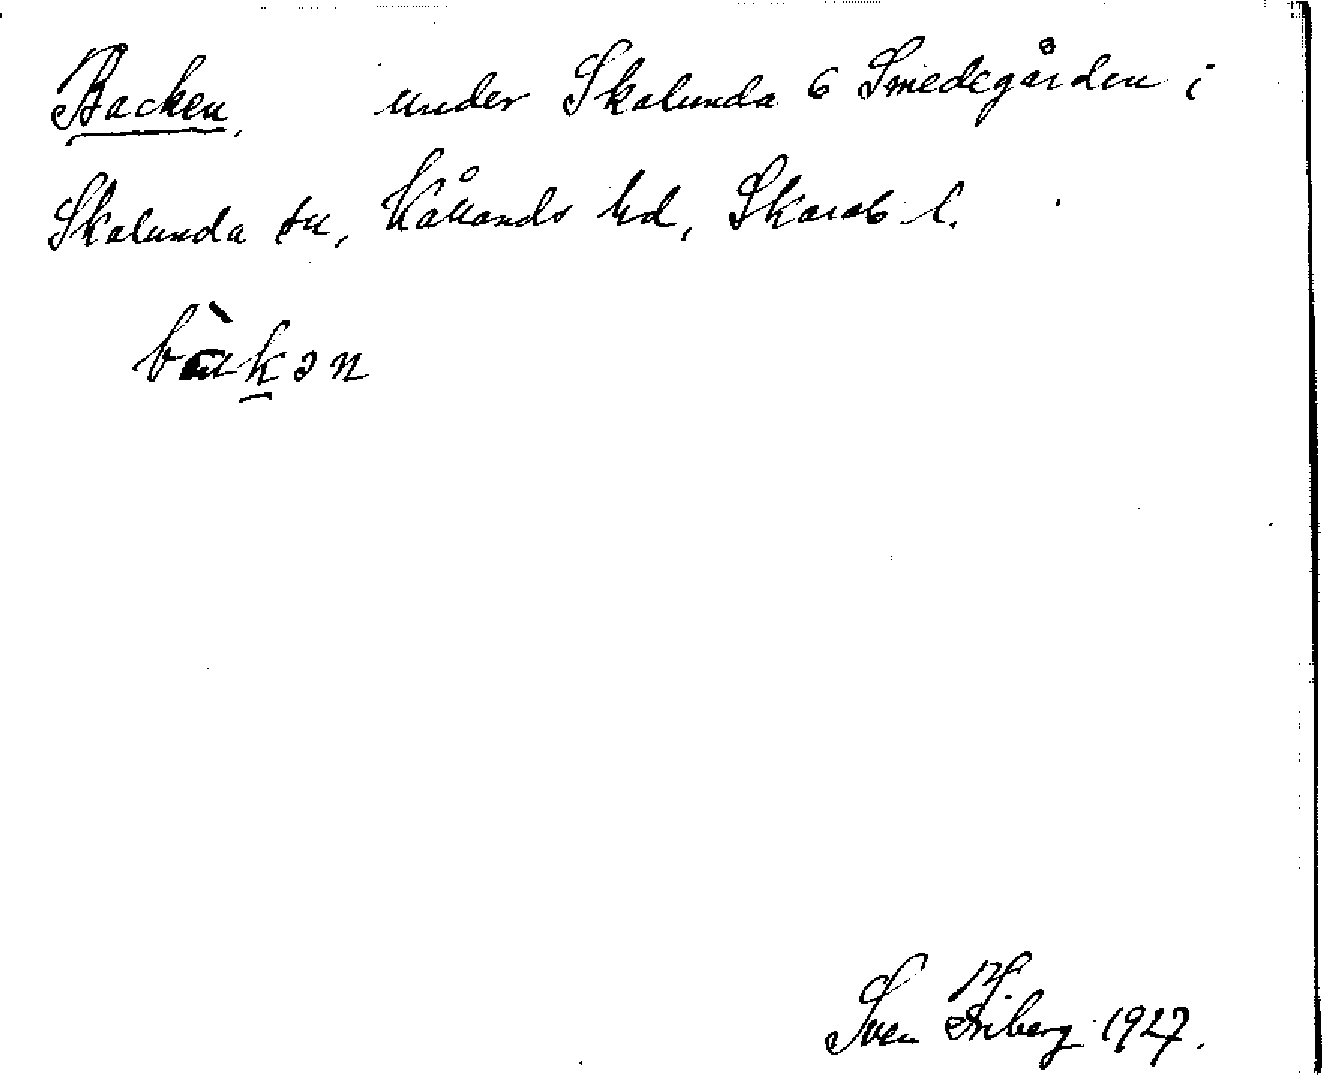 Backen, under Skalunda 6 Smedegården i
Skalunda sn, Kållands hd, Skarab. l.
bàkən
Sven Friberg 1927.